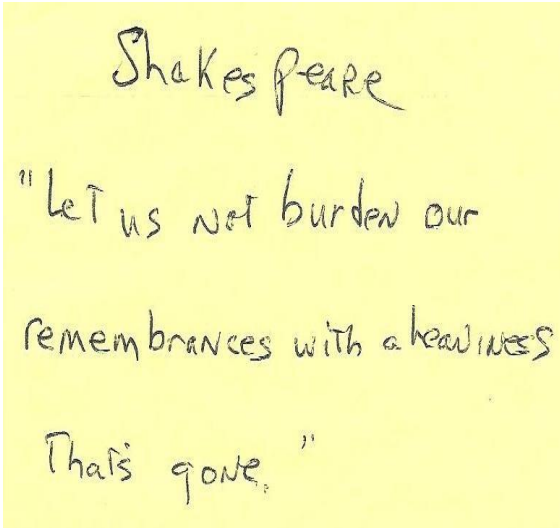 Shakespeare
"Let us not burden our
remembrances with a heaviness
That's gone."